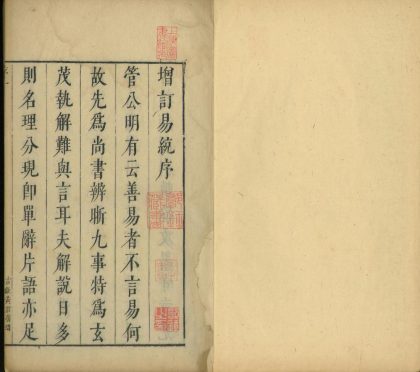 增訂易統序
管公明有云善易者不言易何
故先為尚書辨晰九事特為玄
茂執解難與言耳夫解說日多
則名理分現卽單辭片語亦足